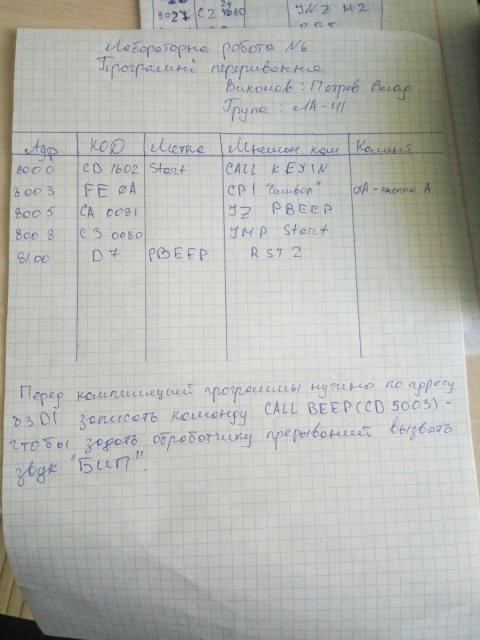 8027 C2 2460 JNZ M2
Лабораторна робота №6
Програмні переривання
Виконав: Петров Влад
Група: ЛА-41
Адр КОД Метка Мнемон. ком Комент.
8000 CD 1602 Start CALL KEYIN
8003 FE 0A CPI "Символ" 0A-кнопка А
8005 CA 0081 JZ PBEEP
8008 C3 0080 JMP Start
8100 D7 PBEEP RST 2
Перед компиляцией программы нужно по адресу
83D1 записать команду CALL BEEP(CD 5003)-
чтобы задать обработчику прерываний вызвать
звук "БИП".